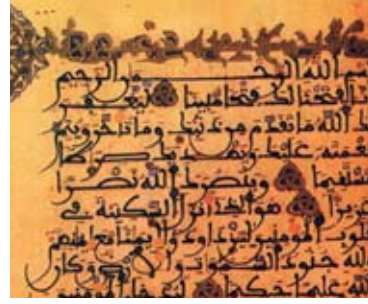 بسم الله الرحمن الرحيم
إنا فتحنا لك فتحا مبينا ليغفر
لك الله ما تقدم من ذنبك وما تأخر ويتم
نعمته عليك ويهديك صراطا
مستقيما وينصرك الله نصرا
عزيزا هو الذي أنزل السكينة في
قلوب المومنين ليزدادوا إيمنا مع إيمنهم
ولله جنود السموت والارض وكان
الله عليما حكيما ليدخل المومنين